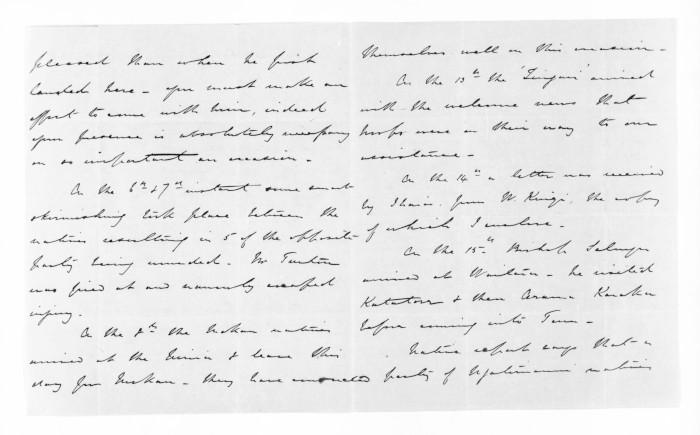 pleased than when he first
landed here - you must make an
effort to come with him, indeed
your presence is absolutely necessary
on so important an occasion -
On the 6th & 7th instant some smart
skirmishing took place between the
natives resulting in 5 of the opposite
party being wounded - Mr Turton
was fired at and narrowly escaped
injury.
On the 8th the Mokau natives
arrived at the & leave this
day for Mokau - they have conducted
themselves well on this occasion -
On the 13th the arrived
with the welcome news that
troops were on their way to our
assistance -
On the 14th a letter was received
by from W. Kingi, the copy
of which I enclose -
On the 15th Bishop Selwyn
arrived at Waitara - he visited
Katatore & then Arama Karaka
before coming into Town -
Native report says that a
party of Ngatimaru natives